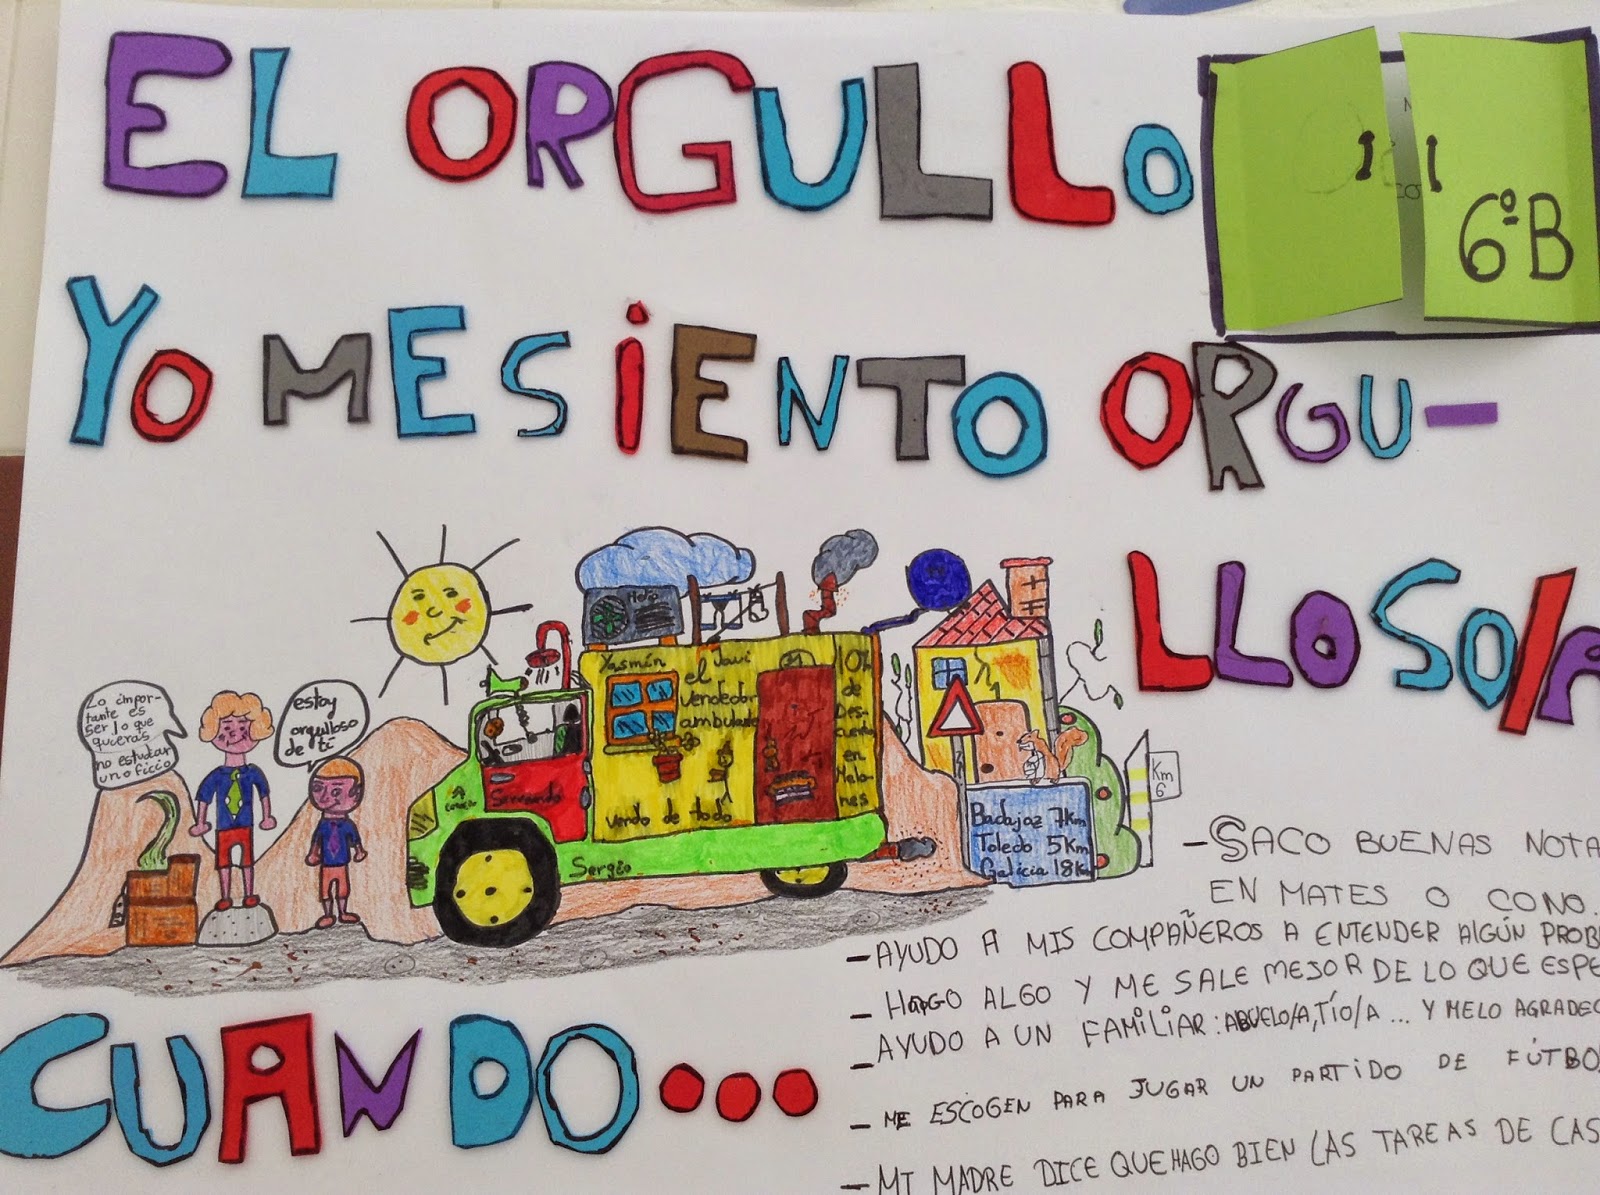 EL ORGULLO
6º B
YO ME SIENTO ORGU-
LLOSO/A
Lo impor-
tante es
ser lo que
quieras
no estudiar
un oficio
estoy
orgulloso
de ti
Yasmín
el Javi
vendedor
ambulante
vendo de todo
10%
de
Des-
cuento
en
Melo-
nes
Servando
Sergio
Km
6
Badajoz 7Km
Toledo 5Km
Galicia 18Km
CUANDO...
- SACO BUENAS NOTA
EN MATES O CONO.
- AYUDO A MIS COMPAÑEROS A ENTENDER ALGÚN PROB
- HAGO ALGO Y ME SALE MEJOR DE LO QUE ESPE
- AYUDO A UN FAMILIAR: ABUELO/A, TÍO/A ... Y ME LO AGRADEC
- ME ESCOGEN PARA JUGAR UN PARTIDO DE FÚTBO
- MI MADRE DICE QUE HAGO BIEN LAS TAREAS DE CAS